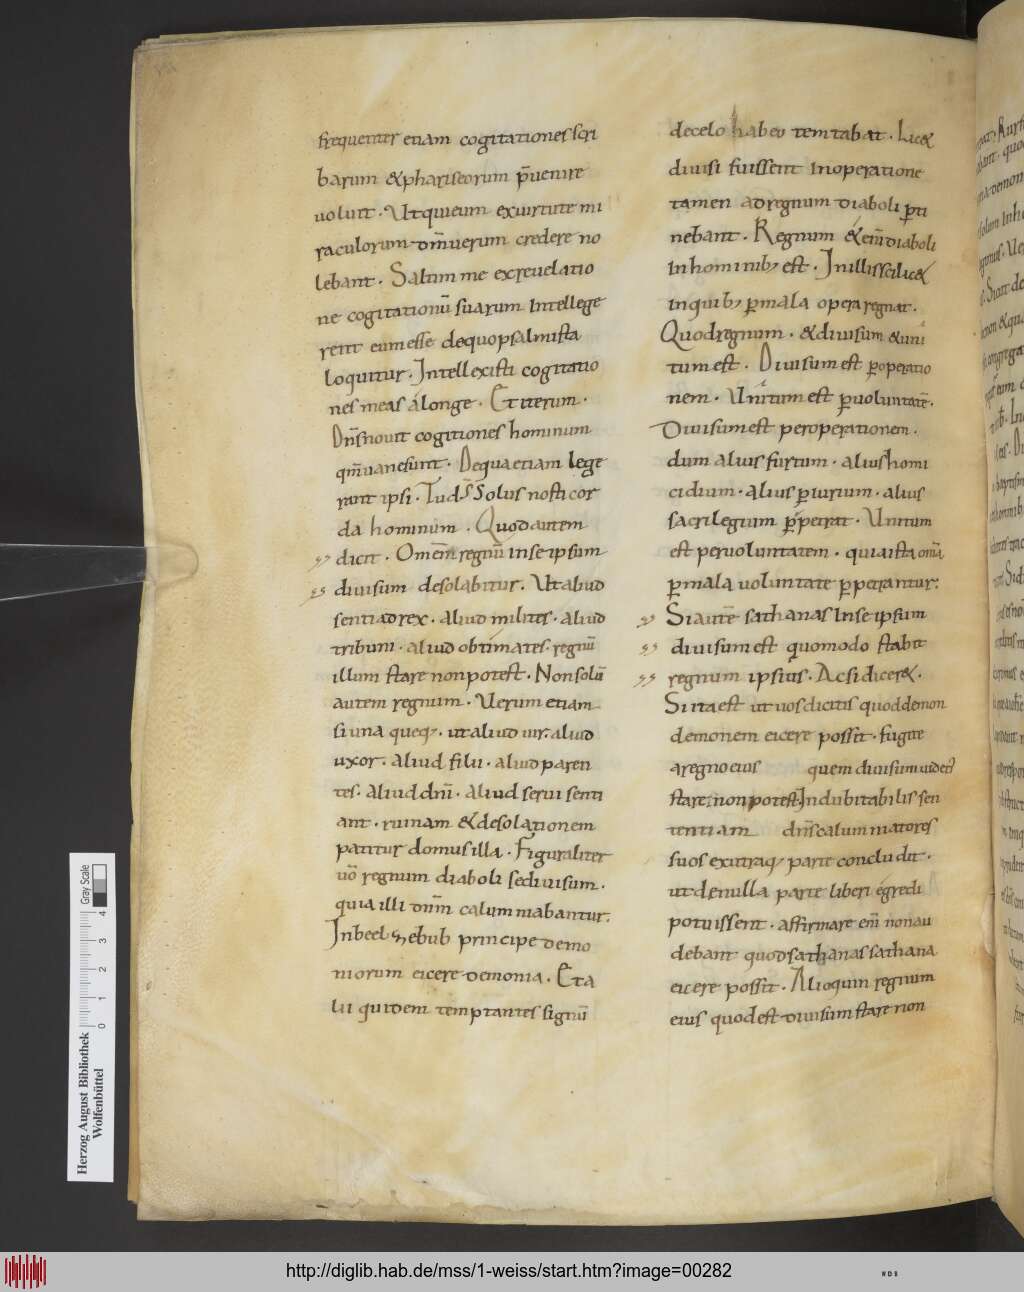 frequenter etiam cogitationes scri
barum &phariseorum p̄uenire
uoluit. Utquieum exuirtute mi
raculorum dn̄m uerum credere no
lebant. Saltim me exreuelatio
ne cogitationū suarum Intellege
rent eum esse dequo psalmista
loquitur. Intellexisti cogitatio
nes meas alonge. Et iterum.
Dn̄s nouit cogitiones hominum
qm̄ uanesunt. Dequa etiam lege
rant ipsi. Tu dn̄s Solus nosti cor
da hominum. Quod autem
dicit. Omēm regnū inse ipsum
diuisum desolabitur. Ut aliud
senti ad rex. aliud milites. aliud
tribuni. aliud obtimates. regnū
illum stare non potest. Non solū
autem regnum. Uerum etiam
si una queq;. ut aliud uir. aliud
uxor. aliud filii. aliud paren
tes. aliud dn̄i. aliud serui senti
ant. ruinam &desolationem
patitur domus illa. Figuraliter
uō regnum diaboli sediuisum.
quia illi dn̄m calumniabantur.
Inbeelzebub principe demo
niorum eicere demonia. Et a
lii quidem temptantes signū
decelo habeo temtabat. Lic&
diuisi fuissent Inoperatione
tamen adregnum diaboli p̱ti
nebant. Regnum & em̄ diaboli
Inhominib; est. Inillis scilic&
inquib; p̱mala opera regnat.
Quod regnum. &diuisum &uni
tum est. Diuisum est p̱operatio
nem. Unitum est p̱uoluntatē.
Diuisum est peroperationem.
dum alius furtum. alius homi
cidium. alius p̱iurium. alius
sacrilegium p̱petrat. Unitum
est peruoluntatem. quia ista om̄a
p̱mala uoluntate p̱petrantur:
Siautē sathanas Inse ipsum
diuisum est quomodo stabit
regnum ipsius. Acsi dicer&.
Si ita est ut uos dicitis quod demon
demonem eicere possit. fugite
aregno eius quem diuisum uidetis
stare non potest. Indubitabilis sen
tentiam dn̄s calumniatores
suos exutraq; parte concludit.
ut de nulla parte liberi egredi
potuissent. affirmare em̄ non au
debant quod sathanas sathana
eicere possit. Alioquin regnum
eius quod est diuisum stare non
Herzog August Bibliothek
Wolfenbüttel
0 1 2 3 4
Gray Scale
http://diglib.hab.de/mss/1-weiss/start.htm?image=00282